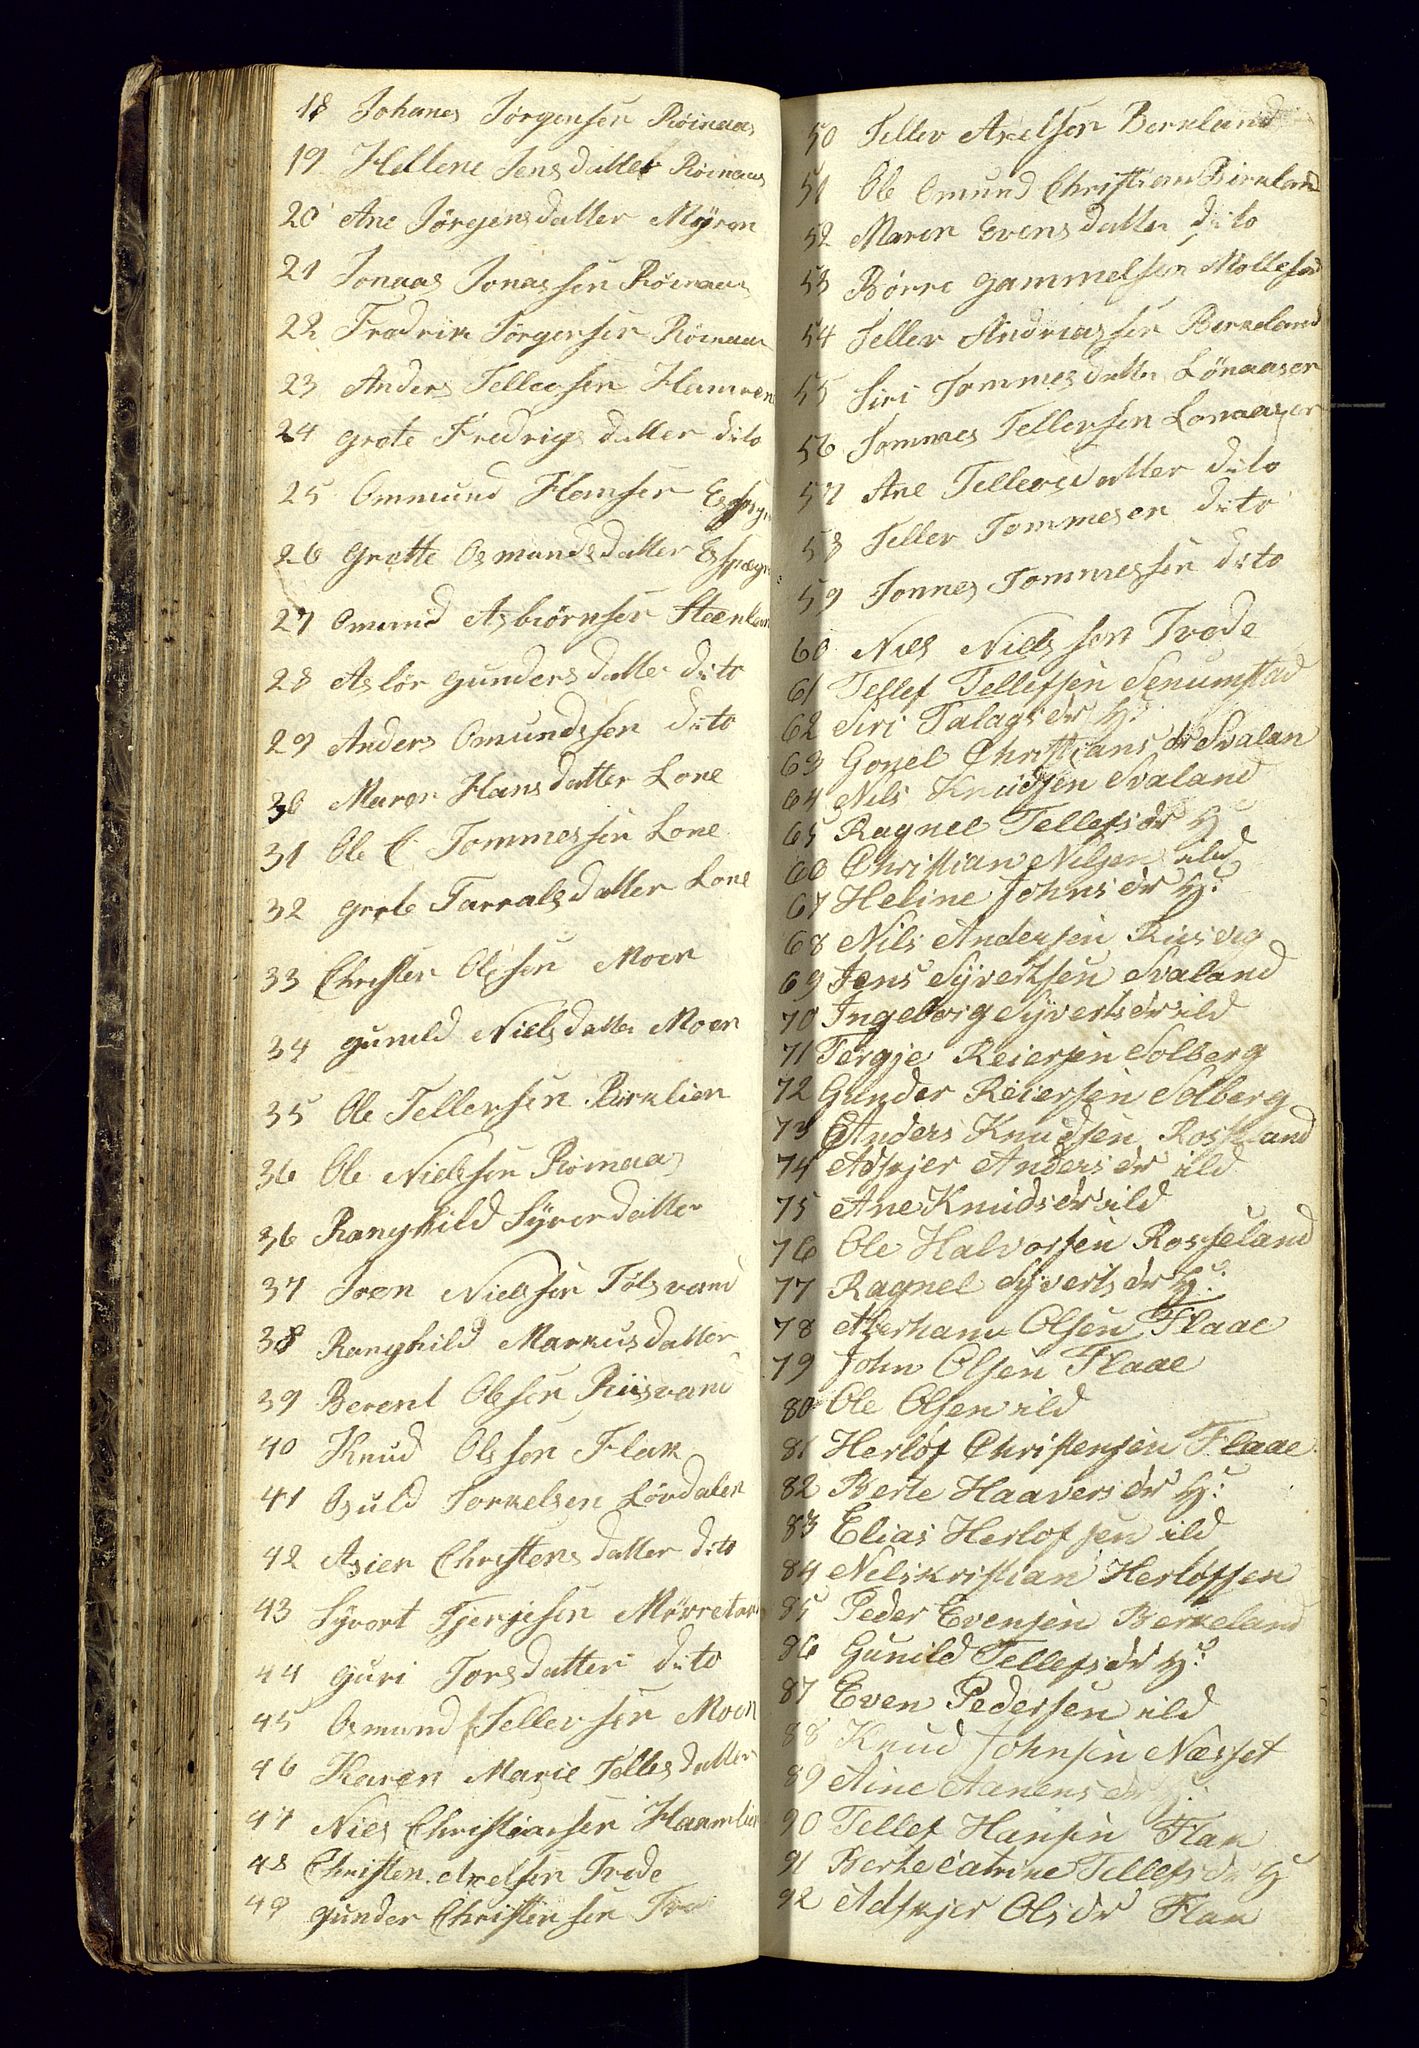 18 Johanes Jørgensen Røinaas
19 Hellene Jensdatter Røinaas
20 Ane Jørgensdatter Myren
21 Jonaas Jonassen Røinaas
22 Fredrik Jørgensen Røinaas
23 Anders Tellevsen Hamren
24 grete Fredrigsdatter dito
25 Ommund Hansen
26 Grette Osmundsdatter
27 Omund Asbiørnsen
28 Aslör gundersdatter dito
29 Anders Omundssen dito
30 Maren Hansdatter Lone
31 Ole C Tommessen Lone
32 grete Tarralsdatter Lone
33 Christen Olessen Moen
34 gunild Nielsdatter Moen
35 Ole Tellevsen Birklien
36 Ole Nielssen Røinaas
36 Ranghild Syverdatter
37 Iven Nielssen Tölsvand
38 Ranghild Markusdatter
39 Berent Olessen Riisvand
40 Knud Olssen Flak
41 Osuld Torkelsen Lövdalen
42 Asier Christensdatter dito
43 Syvert Tjerjesen
44 guri Torsdatter dito
45 Osmund Tellevsen Moen
46 Karen Marie Tellesdatter
47 Niels Christiansen Haamlien
48 Christen Axelsen Trede
49 gunder Christensen
50 Tellev Axelsen Berkland
51 Ole Omund Christian Birkland
52 Maren Evensdatter dito
53 Börre gammelsen
54 Tellev Andriassen Berkeland
55 Siri Tommesdatter Lönaasen
56 Tommes Tellevsen Lonaasen
57 Ane Tellevsdatter dito
58 Tellev Tommesen dito
59 Jonnes Tommessen dito
60 Niels Nielssen Trede
61 Tellef Tellefsen Senumstad
62 Siri Talagsdr H:
63 Goyel Christiansdr Svalan
64 Nils Knudsen Svaland
65 Ragnel Tellefsdr H
66 Christian Nilsen ild
67 Heline Johnsdr H:
68 Nils Andersen Riisvig
69 Jens Syvertsen Svaland
70 Ingeborg Syvertsdr ild
71 Tergje Reiersen Solberg
72 Gunder Reiersen Solberg
73 Anders Knudsen Rosseland
74 Adskjer Andersdr ild
75 Ane Knudsdr ild
76 Ole Halvorsen Rosseland
77 Ragnel Syvertsdr H:
78 Aberham Olsen Flaae
79 John Olsen Flaae
80 Ole Olsen ild
81 Herlöf Christensen Flaae
82 Berte Haaversdr H:
83 Elias Herlofsen ild
84 Nilskristian Herlofsen
85 Peder Evensen Berkeland
86 Gunild Tellefsdr H:
87 Even Pedersen ild
88 Knud Johnsen Næsset
89 Aine Aanensdr H:
90 Tellef Hansen Flak
91 Berte Catrine Tellefsdr H
92 Adskjer Olsdr Flak